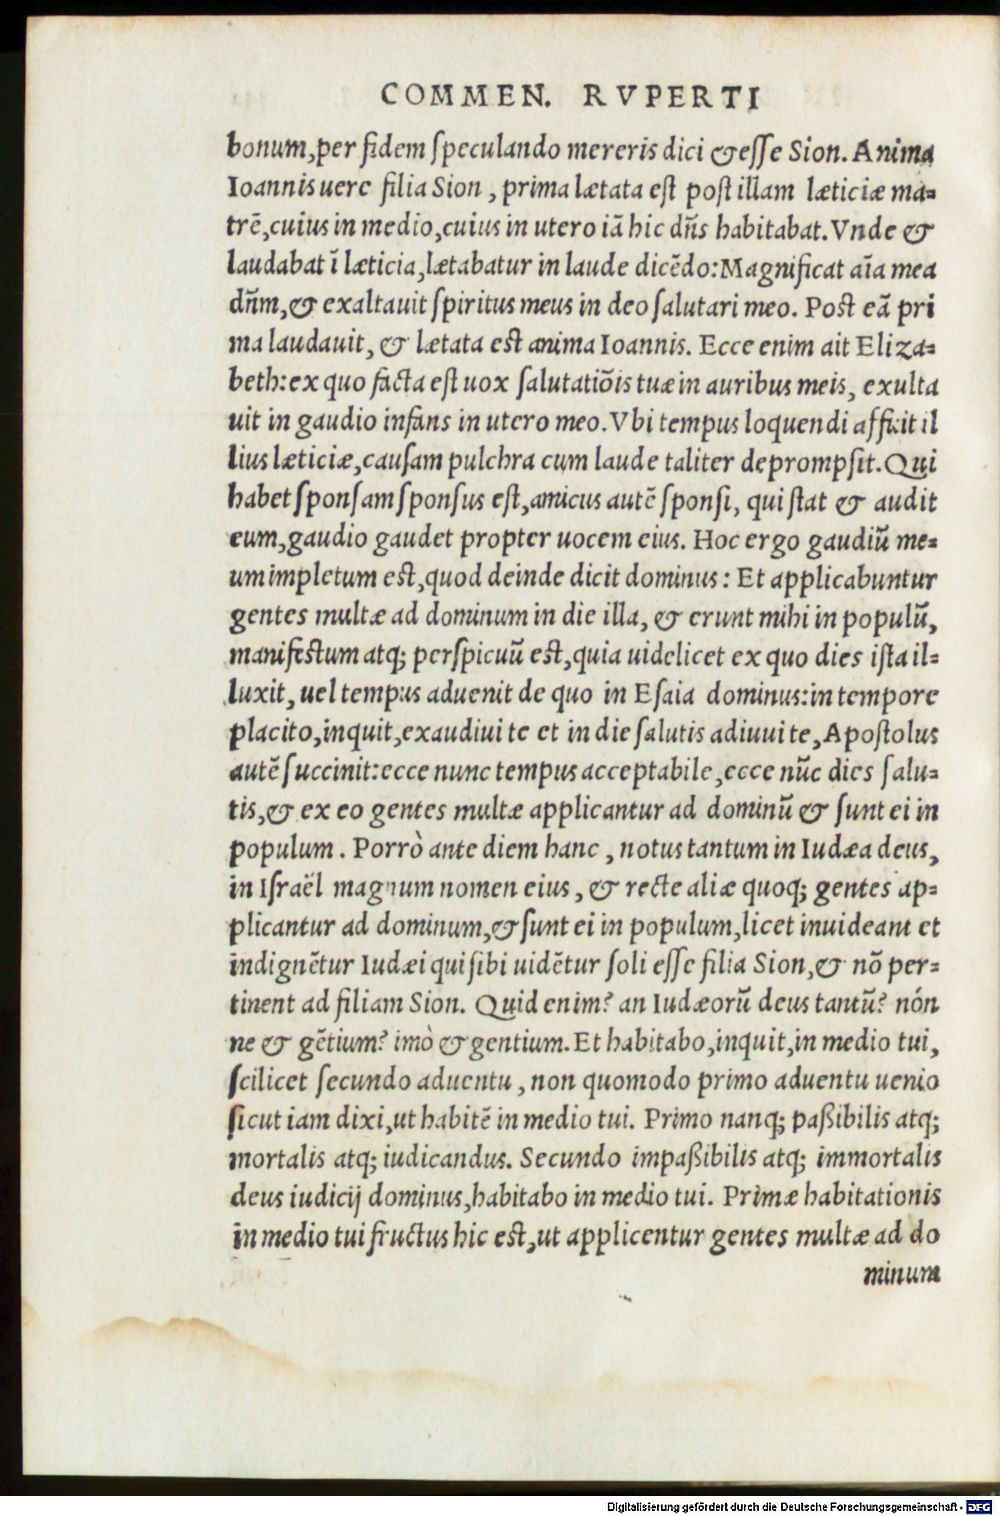 COMMEN. RVPERTI
bonum,per fidem ſpeculando mereris dici &eſſe Sion. Anima
Ioannis uere filia Sion, prima lætata eſt poſt illam læticiæ ma-
trē,cuius in medio,cuius in utero iā hic dn̄s habitabat. Vnde &
laudabat ī læticia,lætabatur in laude dicēdo:Magnificat aīa mea
dn̄m,& exaltauit ſpiritus meus in deo ſalutari meo. Poſt eā pri
ma laudauit, & lætata eſt anima Ioannis. Ecce enim ait Eliza-
beth:ex quo facta eſt uox ſalutatiōis tuæ in auribus meis, exulta
uit in gaudio infans in utero meo. Vbi tempus loquendi affuit il
lius læticiæ,cauſam pulchra cum laude taliter deprompſit. Qui
habet ſponſam ſponſus eſt,amicus autē ſponſi, qui ſtat & audit
eum,gaudio gaudet propter uocem eius. Hoc ergo gaudiū me-
um impletum eſt,quod deinde dicit dominus: Et applicabuntur
gentes multæ ad dominum in die illa, & erunt mihi in populū,
manifeſtum atq; perſpicuū eſt,quia uidelicet ex quo dies iſta il-
luxit, uel tempus aduenit de quo in Eſaia dominus:in tempore
placito,inquit,exaudiui te et in die ſalutis adiuui te, Apoſtolus
autē ſuccinit:ecce nunc tempus acceptabile,ecce nūc dies ſalu-
tis,& ex eo gentes multæ applicantur ad dominū & ſunt ei in
populum. Porrò ante diem hanc, notus tantum in Iudæa deus,
in Iſraël magnum nomen eius, & recte aliæ quoq; gentes ap-
plicantur ad dominum,& ſunt ei in populum,licet inuideant et
indignētur Iudæi qui ſibi uidētur ſoli eſſe filia Sion,& nō per-
tinent ad filiam Sion. Quid enim? an Iudæorū deus tantū? nón
ne & gētium? imò & gentium. Et habitabo,inquit,in medio tui,
ſcilicet ſecundo aduentu, non quomodo primo aduentu uenio
ſicut iam dixi,ut habitē in medio tui. Primo nanq; paßibilis atq;
mortalis atq; iudicandus. Secundo impaßibilis atq; immortalis
deus iudicij dominus,habitabo in medio tui. Primæ habitationis
in medio tui fructus hic eſt,ut applicentur gentes multæ ad do
minum
Digitalisierung gefördert durch die Deutsche Forschungsgemeinschaft - DFG